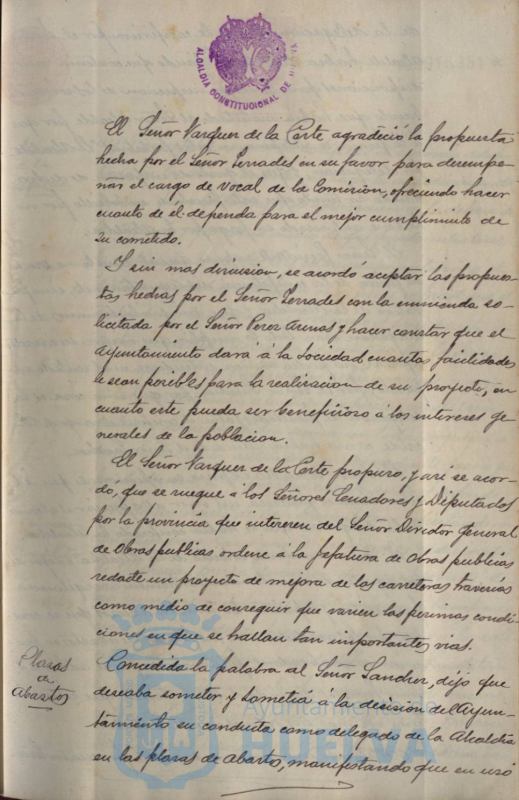 ALCALDIA CONSTITUCIONAL DE HUELVA
El Señor Vazquez de la Corte agradeció la propuesta
hecha por el Señor Terrades en su favor para desempe-
ñar el cargo de vocal de la Comision, ofreciendo hacer
cuanto de él dependa para el mejor cumplimiento de
su cometido.
Y sin mas discusion, se acordó aceptar las propues-
tas hechas por el Señor Terrades con la enmienda so-
licitada por el Señor Perez Arenas y hacer constar que el
Ayuntamiento dará á la Sociedad cuantas facilidades
le sean posibles para la realizacion de su proyecto, en
cuanto este pueda ser beneficioso á los intereses ge-
nerales de la poblacion.
El Señor Vazquez de la Corte propuso, y asi se acor-
dó, que se ruegue á los Señores Senadores y Diputados
por la provincia que interesen del Señor Director General
de Obras publicas ordene á la Jefatura de Obras publicas
redacte un proyecto de mejora de las carreteras travesias
como medio de conseguir que varien las pesimas condi-
ciones en que se hallan tan importantes vias.
Plazas
de
Abastos
Concedida la palabra al Señor Sanchez, dijo que
deseaba someter y sometia á la decision del Ayun-
tamiento su conducta como delegado de la Alcaldia
en las plazas de abastos, manifestando que en uso
Ayuntamiento de
HUELVA